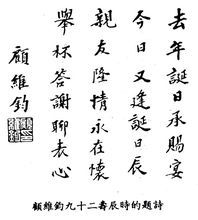 去年誕日承賜宴
今日又逢誕日辰
親友隆情永在懷
舉杯答謝聊表心
顧維鈞
顧維鈞九十二壽辰時的題詩